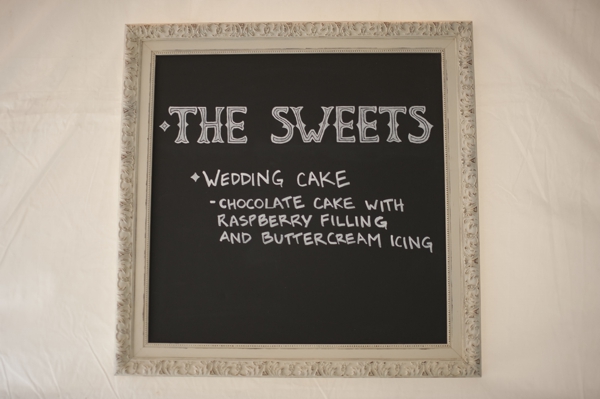 THE SWEETS
WEDDING CAKE
- CHOCOLATE CAKE WITH
RASPBERRY FILLING
AND BUTTERCREAM ICING